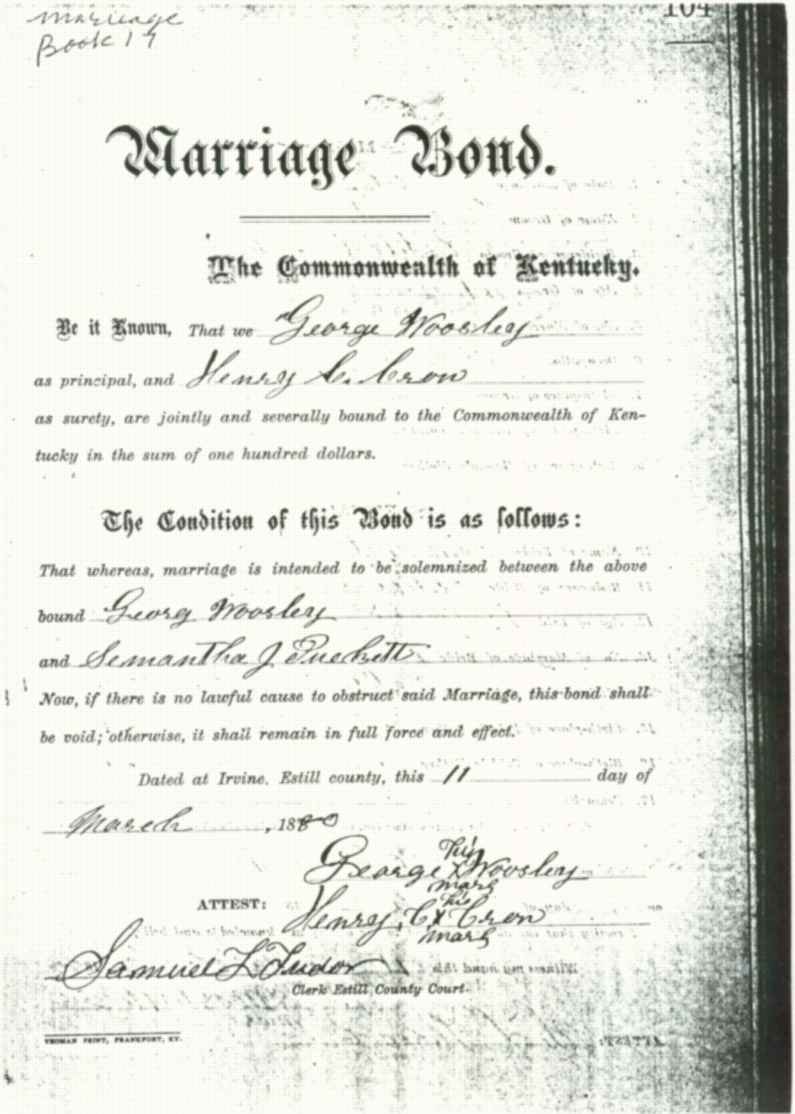 marriage
Book 17
104
Marriage Bond.
The Commonwealth of Kentucky.
Be it Known, That we George Woosley
as principal, and Henry C. Crow
as surety, are jointly and severally bound to the Commonwealth of Ken-
tucky in the sum of one hundred dollars.
The Condition of this Bond is as follows:
That whereas, marriage is intended to be solemnized between the above
bound Georg Woosley
and Semantha J Puckett
Now, if there is no lawful cause to obstruct said Marriage, this bond shall
be void; otherwise, it shall remain in full force and effect.
Dated at Irvine, Estill county, this 11 day of
March, 1880
his
George x Woosley
mark
his
ATTEST: Henry C x Crow
mark
Samuel L Tudor
Clerk Estill County Court.
YEOMAN PRINT, FRANKFORT, KY.
ATTEST: